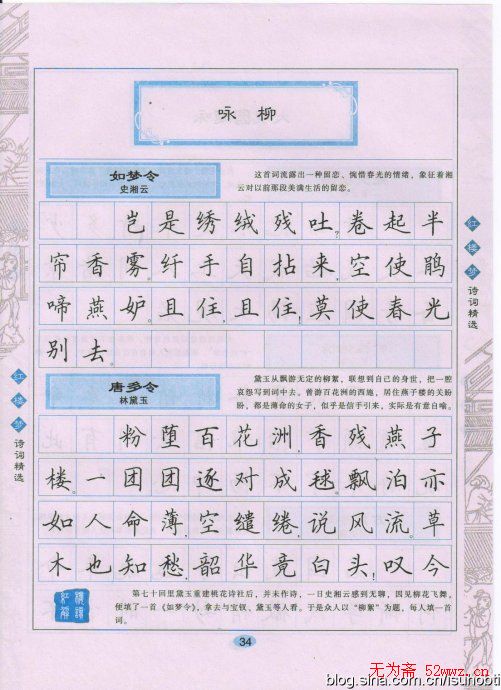 咏柳
如梦令
史湘云
这首词流露出一种留恋、惋惜春光的情绪，象征着湘
云对以前那段美满生活的留恋。
岂是绣绒残吐，卷起半
帘香雾。纤手自拈来，空使鹃
啼燕妒。且住，且住！莫使春光
别去。
唐多令
林黛玉
黛玉从飘游无定的柳絮，联想到自己的身世，把一腔
哀怨写到词中去。曾游百花洲的西施，居住燕子楼的关盼
盼，都是薄命的女子，似乎是信手引来，实际是有意自喻。
粉堕百花洲，香残燕子
楼。一团团逐对成毬。飘泊亦
如人命薄，空缱绻，说风流。草
木也知愁，韶华竟白头！叹今
第七十回里黛玉重建桃花诗社后，并未作诗，一日史湘云感到无聊，因见柳花飞舞，
便填了一首《如梦令》，拿去与宝钗、黛玉等人看。于是众人以“柳絮”为题，每人填一首
词。
红楼梦诗词精选
红楼梦诗词精选
34
无为斋 52wwz.cn
blog.sina.com.cn/lsuhobti